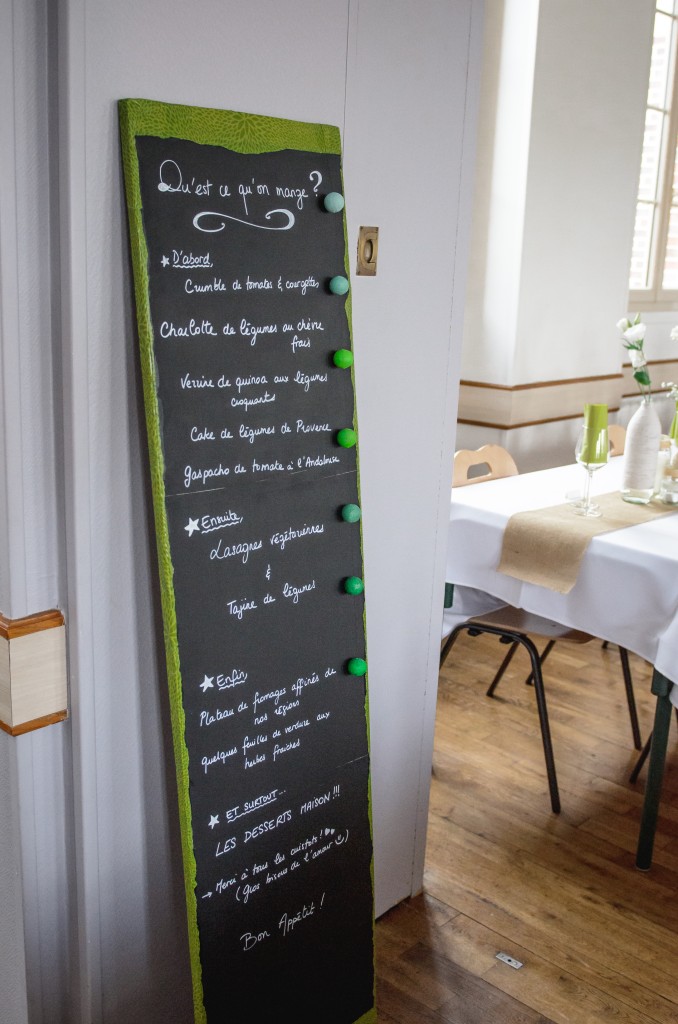 Qu'est ce qu'on mange ?
D'abord,
Crumble de tomates & courgettes
Charlotte de légumes au chèvre
frais
Verrine de quinoa aux légumes
croquants
Cake de légumes de Provence
Gaspacho de tomate à l'Andalouse
Ensuite,
Lasagnes végétariennes
&
Tajine de légumes
Enfin,
Plateau de fromages affinés de
nos régions
quelques feuilles de verdure aux
herbes fraiches
ET SURTOUT...
LES DESSERTS MAISON !!!
→ Merci à tous les cuistots !
(Gros bisous de l'amour)
Bon Appétit !